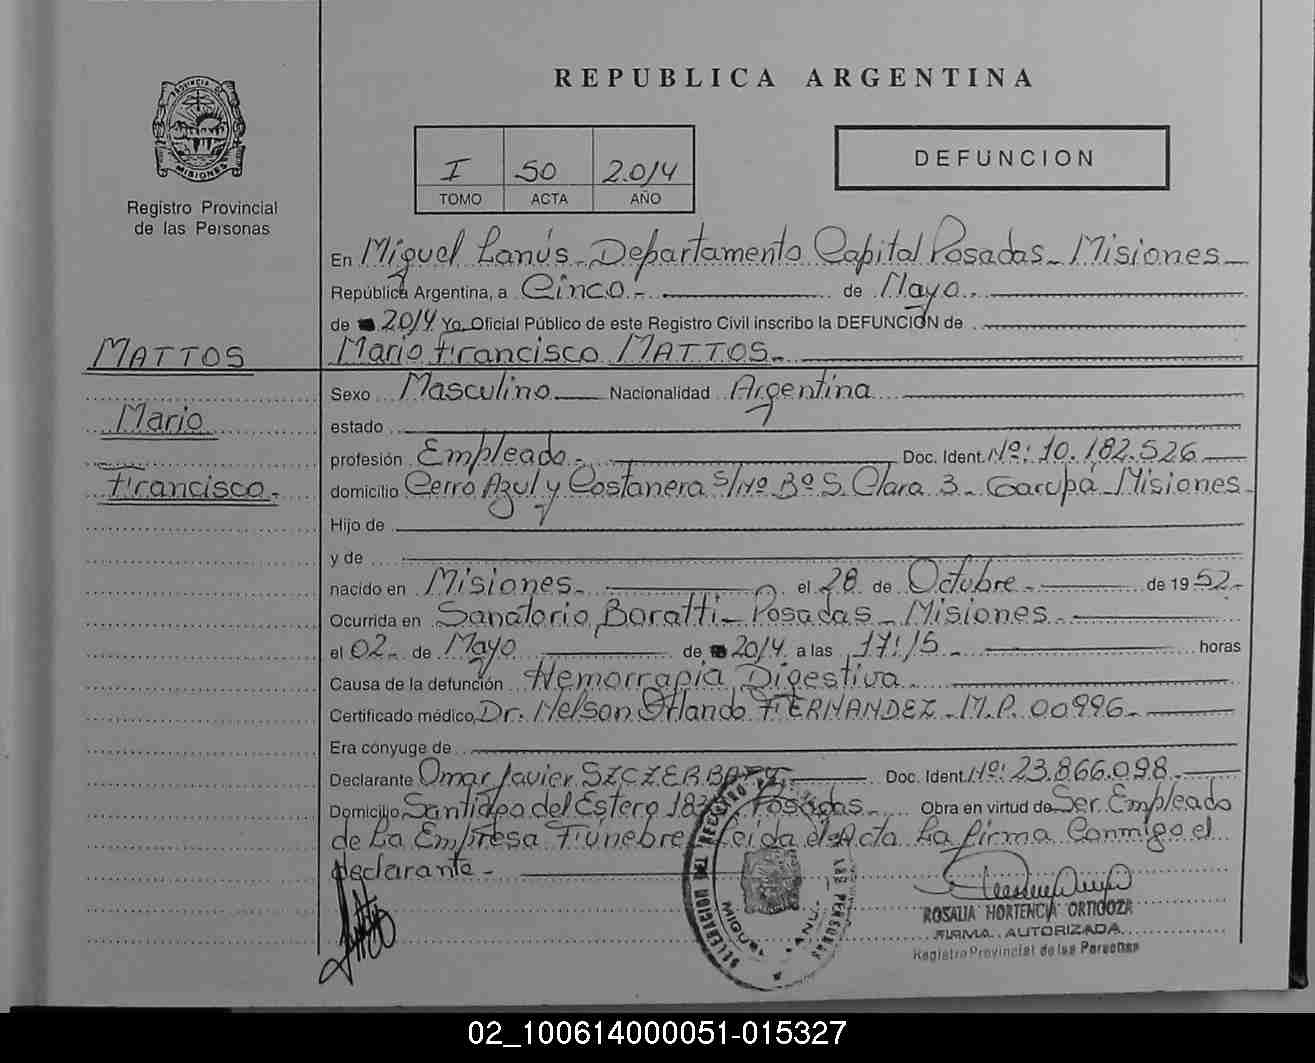 REPUBLICA ARGENTINA
PROVINCIA DE
MISIONES
Registro Provincial
de las Personas
I 50 2.014
TOMO ACTA AÑO
DEFUNCION
En Miguel Lanús - Departamento Capital Posadas - Misiones -
República Argentina, a Cinco.- de Mayo.
de 2014 Yo, Oficial Público de este Registro Civil inscribo la DEFUNCIÓN de
Mario Francisco MATTOS.-
MATTOS
Mario
Francisco.-
Sexo Masculino Nacionalidad Argentina
estado
profesión Empleado.- Doc. Ident. Nº: 10.182.526
domicilio Cerro Azul y Costanera S/Nº Bº S. Clara 3 - Garupá - Misiones -
Hijo de
y de
nacido en Misiones - el 28 de Octubre - de 1952.-
Ocurrida en Sanatorio Boratti - Posadas - Misiones -
el 02 - de Mayo de 2014 a las 17:15 - horas
Causa de la defunción Hemorragia Digestiva
Certificado médico, Dr. Nelson Orlando FERNANDEZ - M.P. 00996 -
Era cónyuge de
Declarante Omar Javier Doc. Ident. Nº: 23.866.098 -
Domicilio Santiago del Estero Posadas - Obra en virtud de Ser Empleado
de La Empresa Fúnebre Leída el Acta La firma Conmigo el
declarante -
DELEGACION DEL REGISTRO DE LAS PERSONAS
MIGUEL LANUS
ROSALIA HORTENCIA ORTIGOZA
FIRMA AUTORIZADA
Registro Provincial de las Personas
02_100614000051-015327